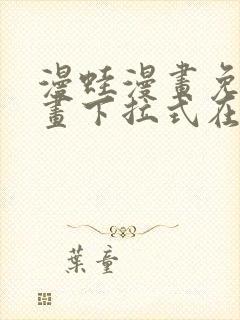 漫蛙漫畫免
畫下拉式在
葉童